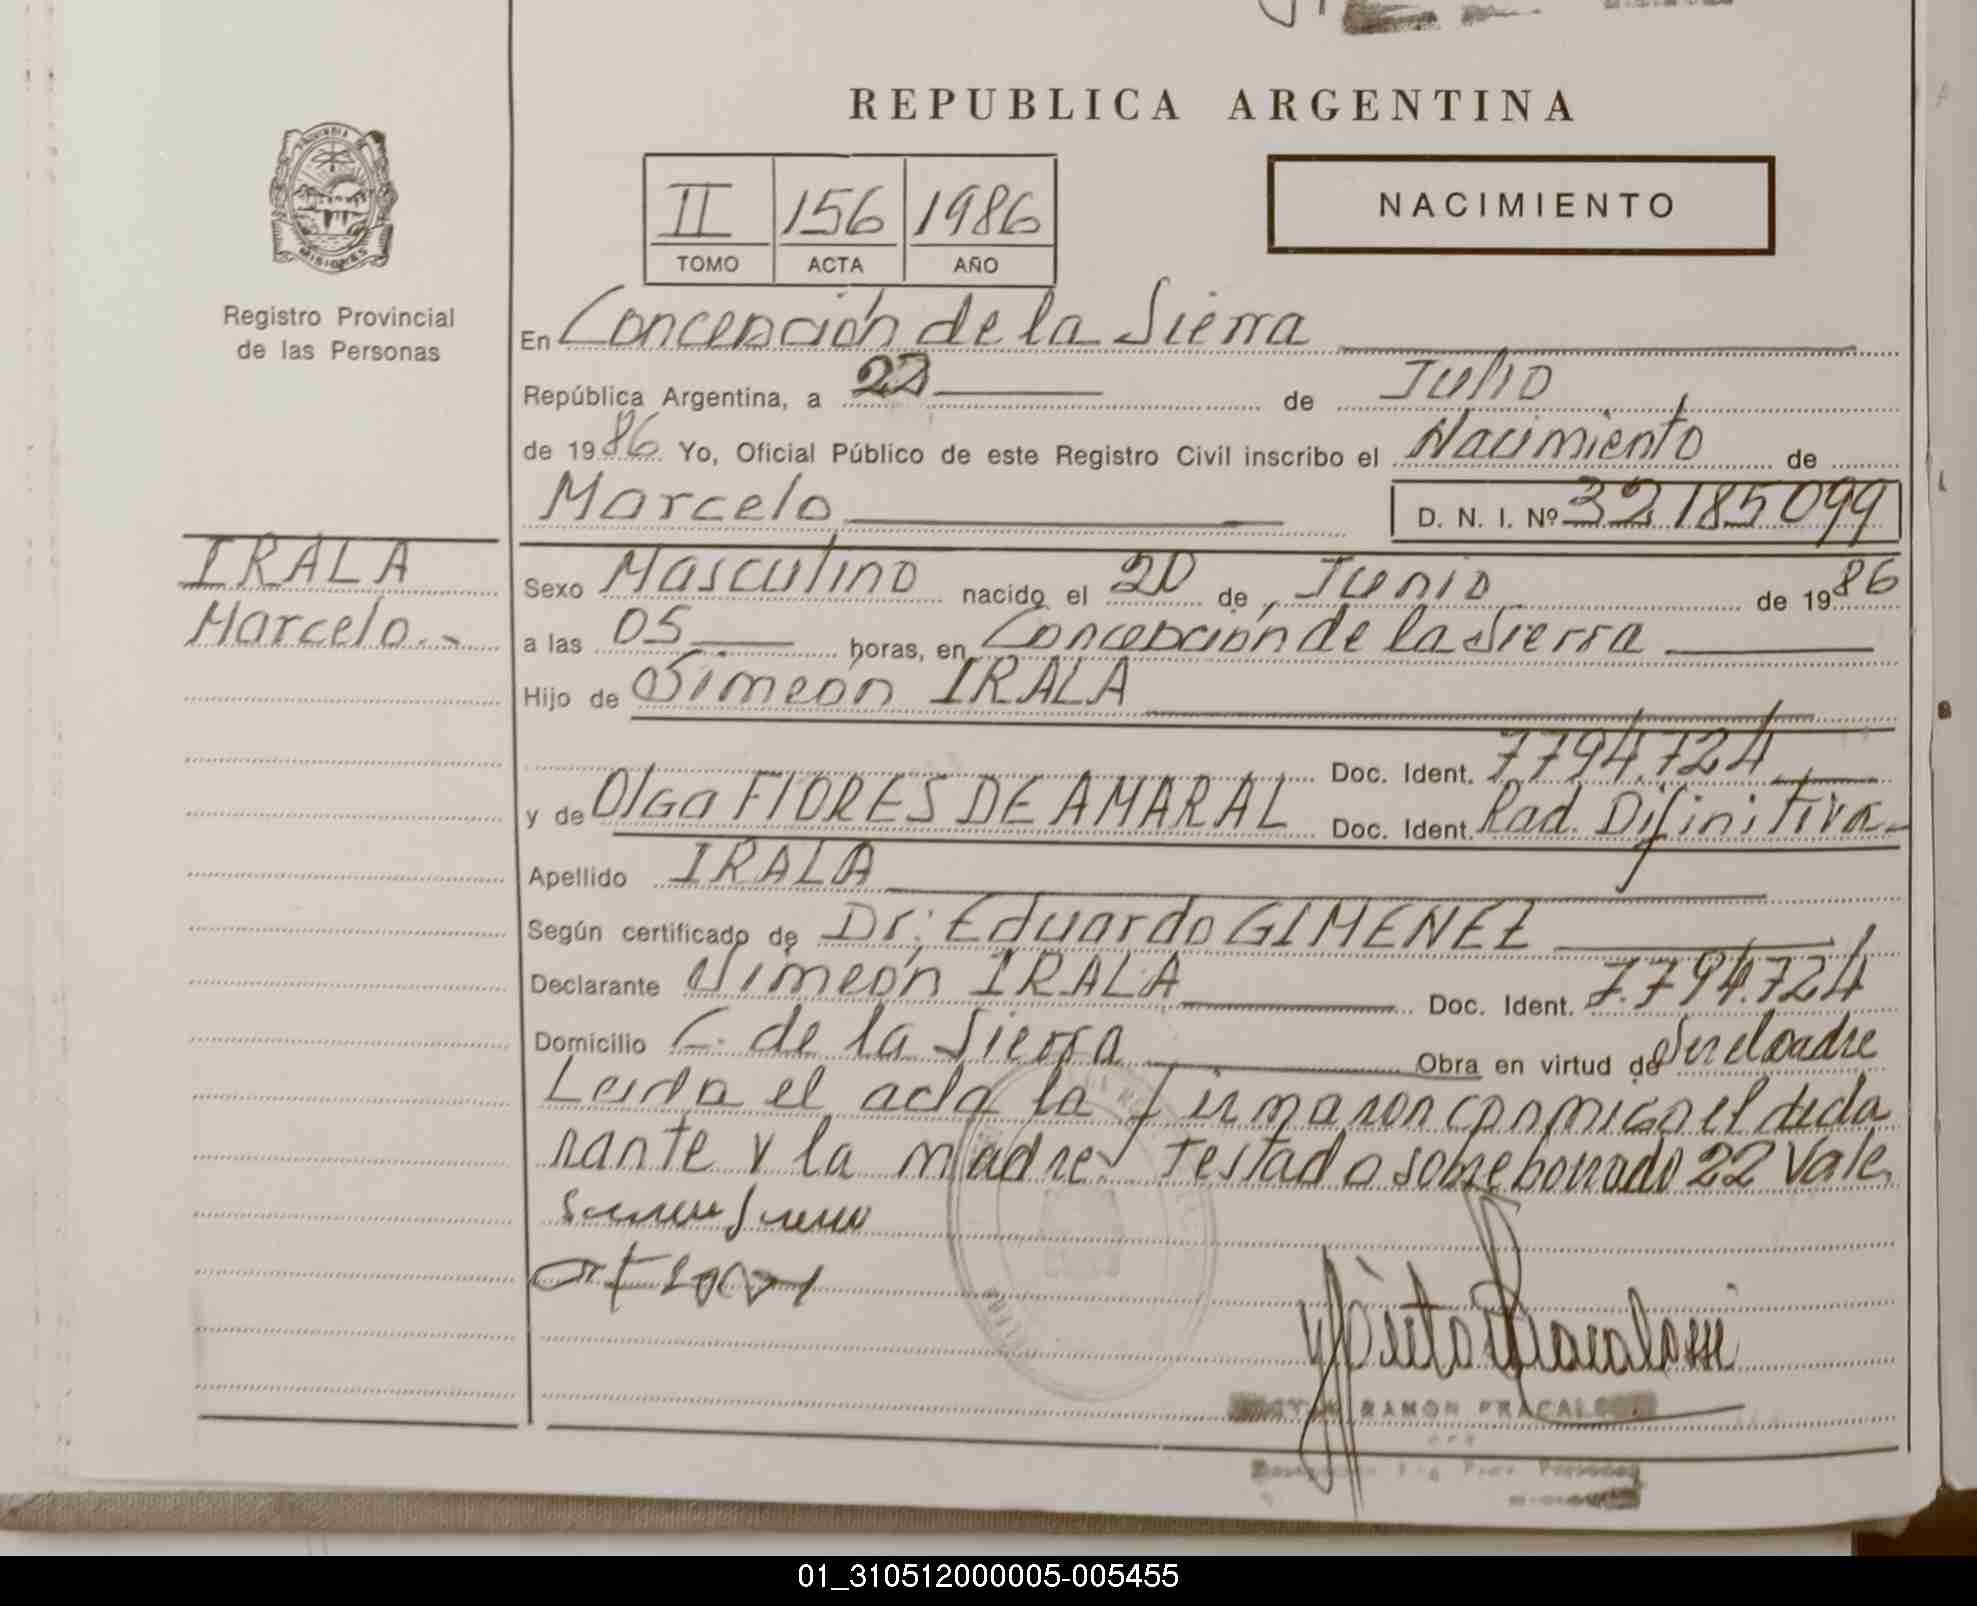 REPUBLICA ARGENTINA
II 156 1986
TOMO ACTA AÑO
NACIMIENTO
PROVINCIA
MISIONES
Registro Provincial
de las Personas
IRALA
Marcelo.-
En Concepción de la Sierra
República Argentina, a 22 de Julio
de 1986 Yo, Oficial Público de este Registro Civil inscribo el Nacimiento de
Marcelo D. N. I. Nº 32.185.099
Sexo Masculino nacido el 20 de Junio de 1986
a las 05 horas, en Concepción de la Sierra
Hijo de Simeón IRALA
Doc. Ident. 7.794.724
y de Olga FLORES DE AMARAL Doc. Ident. Rad. Difinitiva-
Apellido IRALA
Según certificado de Dr: Eduardo GIMENEZ
Declarante Simeón IRALA Doc. Ident. 7.794.724
Domicilio C. de la Sierra Obra en virtud de Ser el padre
Leida el acta la firmaron conmigo el decla
rante y la madre Testado sobreborrado 22 Vale
RAMON FRACALOSSI
01_310512000005-005455